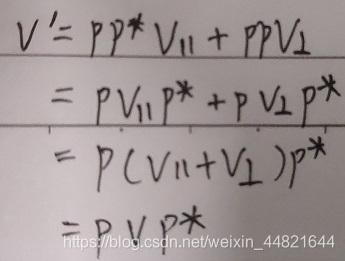 V' = PP* V∥ + PPV⊥
= PV∥P* + PV⊥P*
= P(V∥+V⊥)P*
= PVP*
https://blog.csdn.net/weixin_44821644